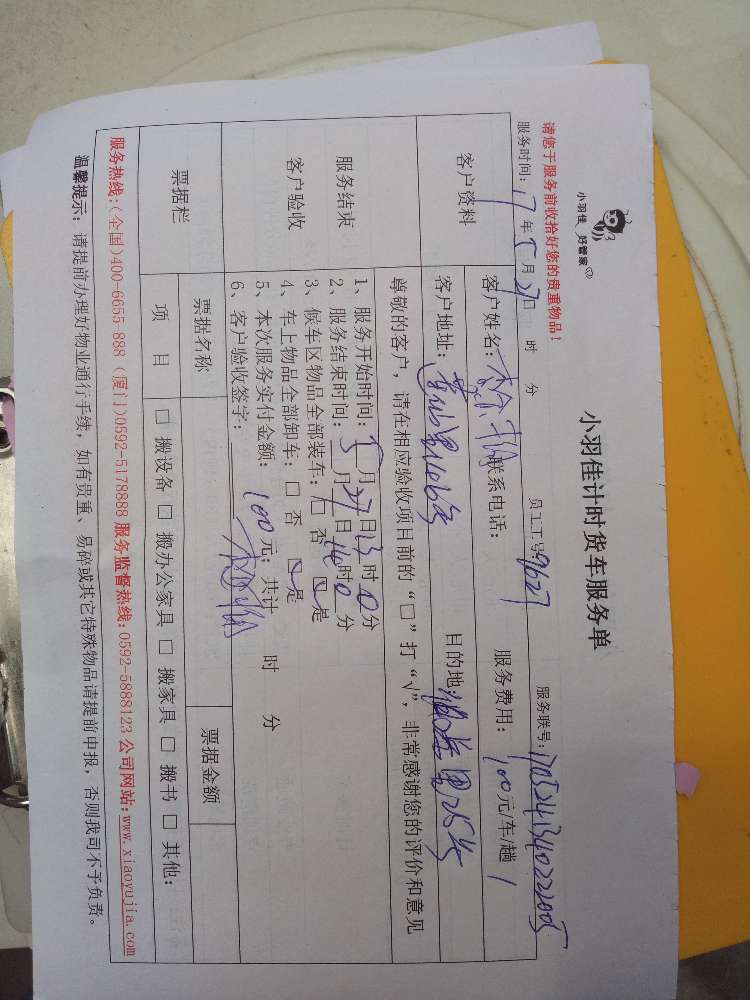 小羽佳 好管家
小羽佳计时货车服务单
请您于服务前收拾好您的贵重物品!
员工工号:9627
服务联号:
服务时间:17年5月27日 时 分
客户资料
客户姓名: 联系电话: 服务费用:100元/车/趟
客户地址: 目的地:
服务结束
客户验收
尊敬的客户, 请在相应验收项目前的“□”打“√”, 非常感谢您的评价和意见
1、服务开始时间:5月27日13时0分
2、服务结束时间:5月27日14时0分
3、候车区物品全部装车:□ 否 □是
4、车上物品全部卸车:□ 否 □是
5、本次服务实付金额: 100元; 共计 时 分
6、客户验收签字:
票据栏
票据名称 票据金额
项 目 □ 搬设备 □ 搬办公家具 □ 搬家具 □ 搬书 □ 其他:
服务热线:(全国)400-6655-888 (厦门)0592-5178888 服务监督热线:0592-5888123 公司网站:www.xiaoyujia.com
温馨提示: 请提前办理好物业通行手续, 如有贵重、易碎或其它特殊物品请提前申报, 否则我司不予负责。